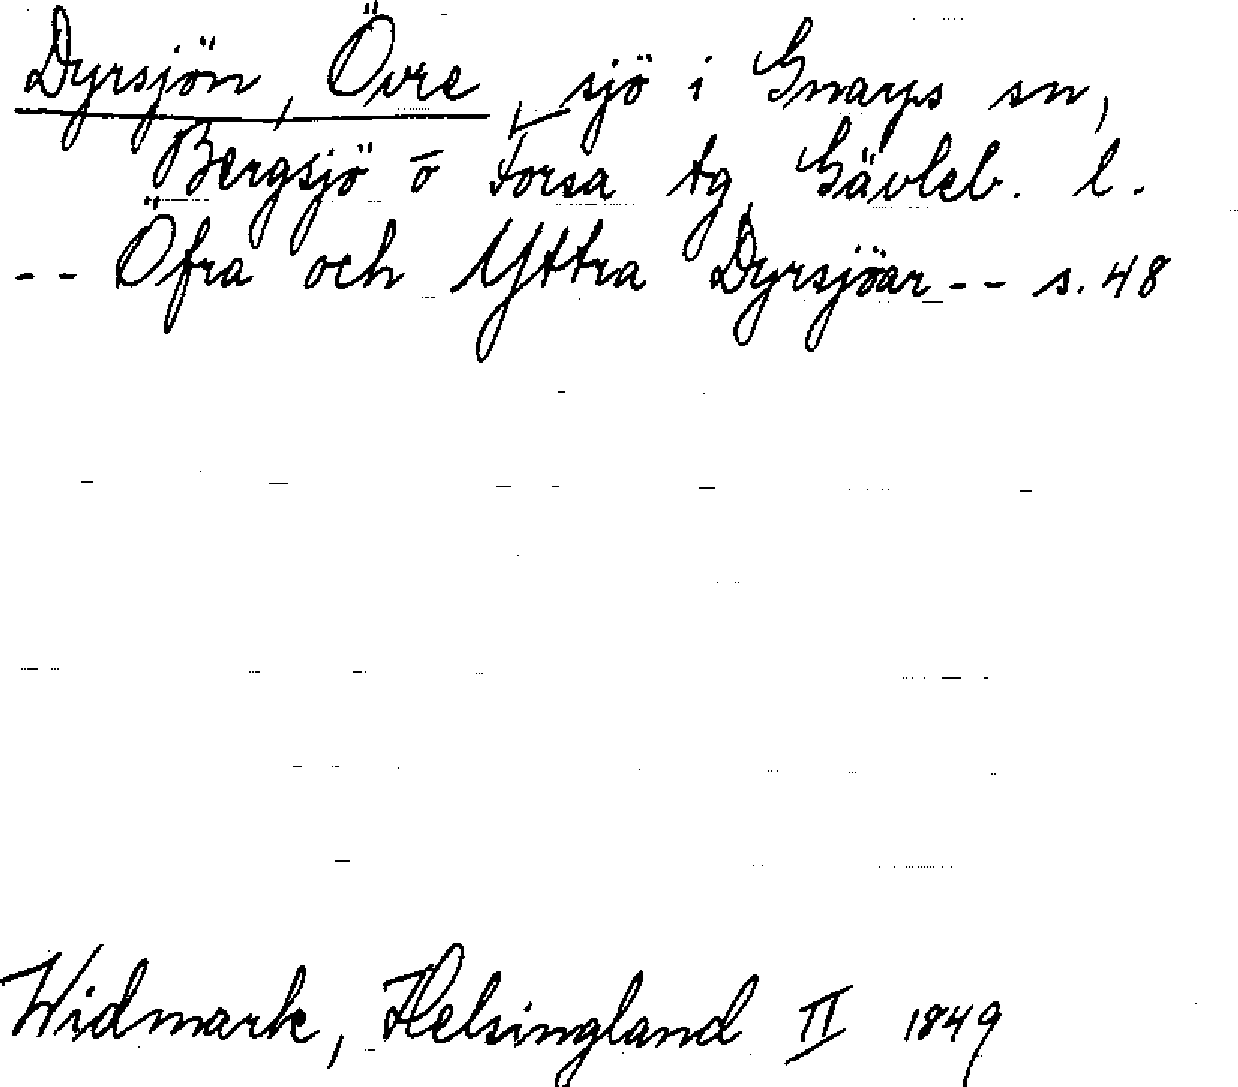 Dyrsjön, Övre, sjö i Gnarps sn,
Bergsjö o Forsa tg, Gävleb. l.
-- Öfra och Yttra Dyrsjöar -- s. 48
Widmark, Helsingland II 1849